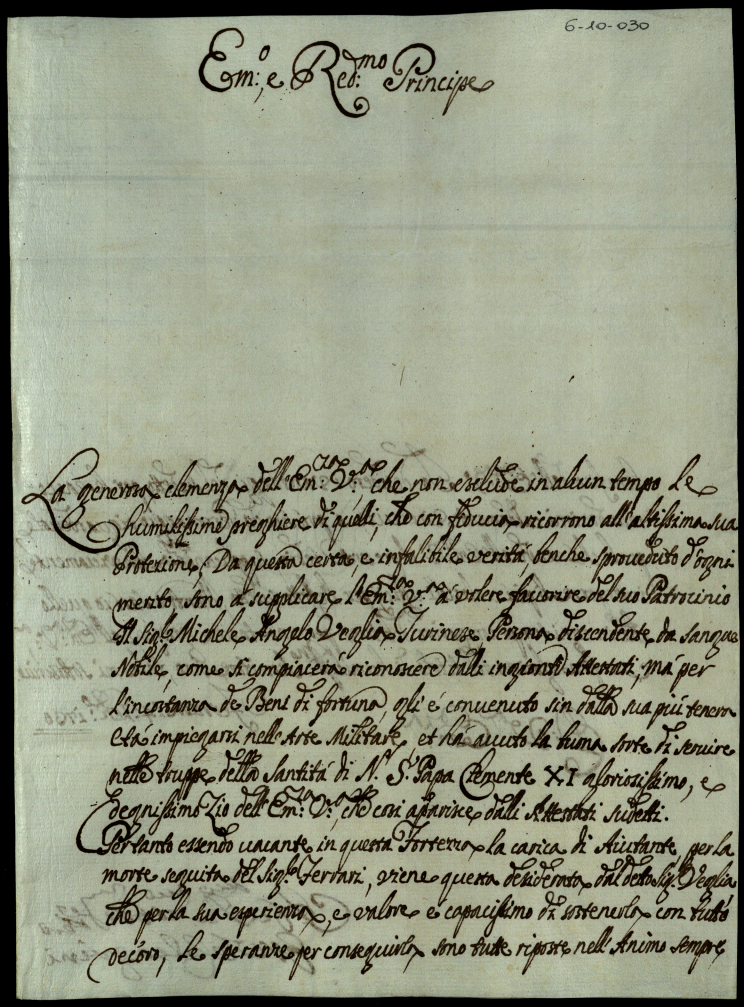 6-10-030
Em:o, e Red:mo Principe
La generosa clemenza dell'Em:za V:a che non esclude in alcun tempo le
humilissime preghiere di quelli, che con fiducia ricorrono all'altissima sua
Protezione, Da questa certa e infalibile verità, benche sproveduto d'ogni
merito sono a supplicare l'Em:za V:ra à volere favorire del suo Patrocinio
il Sig:r Michele Angelo Veglia Turinese Persona discendente da sangue
Nobile, come si compiacerà riconoscere dalli ingionti Attestati, mà per
l'incostanza de Beni di fortuna, gli è convenuto sin dalla sua più tenera
Età impiegarsi nell'Arte Militare, et hà avuto la buona sorte di servire
nelle truppe della Santità di N:o S:r Papa Clemente XI gloriosissimo, e
degnissimo Zio dell'Em:za V:a, che così apparisce dalli Attestati sudetti.
Pertanto essendo vacante in questa Fortezza la carica di Aiutante per la
morte seguita del Sig:r Ferrari, viene questa desiderata dal detto Sig:r Veglia
che per la sua esperienza, e valore è capacissimo di sostenerla con tutto
decoro, le speranze per conseguirla sono tutte riposte nell'Animo sempre